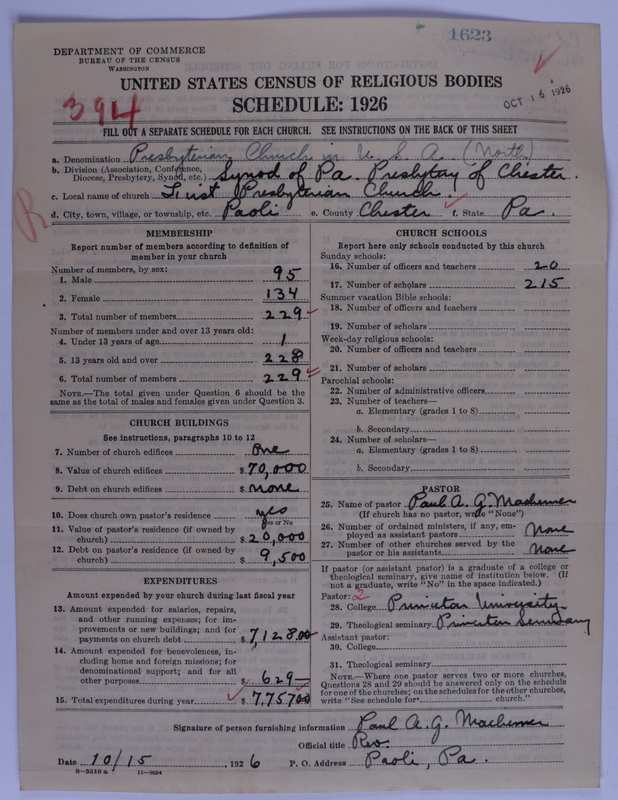 1623
DEPARTMENT OF COMMERCE
BUREAU OF THE CENSUS
WASHINGTON
UNITED STATES CENSUS OF RELIGIOUS BODIES
SCHEDULE: 1926
394
OCT 16 1926
FILL OUT A SEPARATE SCHEDULE FOR EACH CHURCH. SEE INSTRUCTIONS ON THE BACK OF THIS SHEET
a. Denomination Presbyterian Church in U S A (North)
b. Division (Association, Conference, Diocese, Presbytery, Synod, etc.) Synod of Pa. Presbytay of Chester.
c. Local name of church First Presbyterian Church.
d. City, town, village, or township, etc. Paoli e. County Chester f. State Pa.
R
MEMBERSHIP
Report number of members according to definition of
member in your church
Number of members, by sex:
1. Male 95
2. Female 134
3. Total number of members 229
Number of members under and over 13 years old:
4. Under 13 years of age 1
5. 13 years old and over 228
6. Total number of members 229
NOTE.—The total given under Question 6 should be
same as the total of males and females given under Question 3.
CHURCH BUILDINGS
See instructions, paragraphs 10 to 12
7. Number of church edifices One
8. Value of church edifices $70,000
9. Debt on church edifices $ none
10. Does church own pastor's residence yes
Yes or No
11. Value of pastor's residence (if owned by
church) $20,000
12. Debt on pastor's residence (if owned by
church) $ 9,500
EXPENDITURES
Amount expended by your church during last fiscal year
13. Amount expended for salaries, repairs,
and other running expenses; for im-
provements or new buildings; and for
payments on church debt $7,128.00
14. Amount expended for benevolences, in-
cluding home and foreign missions; for
denominational support; and for all
other purposes $ 629
15. Total expenditures during year $7,75700
CHURCH SCHOOLS
Report here only schools conducted by this church
Sunday schools:
16. Number of officers and teachers 20
17. Number of scholars 215
Summer vacation Bible schools:
18. Number of officers and teachers
19. Number of scholars
Week-day religious schools:
20. Number of officers and teachers
21. Number of scholars
Parochial schools:
22. Number of administrative officers
23. Number of teachers—
a. Elementary (grades 1 to 8)
b. Secondary
24. Number of scholars—
a. Elementary (grades 1 to 8)
b. Secondary
PASTOR
25. Name of pastor Paul A. G. Machemer
(If church has no pastor, write "None")
26. Number of ordained ministers, if any, em-
ployed as assistant pastors None
27. Number of other churches served by the
pastor or his assistants None
If pastor (or assistant pastor) is a graduate of a college or
theological seminary, give name of institution below. (If
not a graduate, write "No" in the space indicated.)
Pastor: 2
28. College Princeton University
29. Theological seminary Princeton Seminary
Assistant pastor:
30. College
31. Theological seminary
NOTE.—Where one pastor serves two or more churches,
Questions 28 and 29 should be answered only on the schedule
for one of the churches; on the schedules for the other churches,
write "See schedule for church."
Signature of person furnishing information Paul A. G. Machemer
Official title Rev.
Date 10/15, 1926 P. O. Address Paoli, Pa.
8—5518 a 11—9034